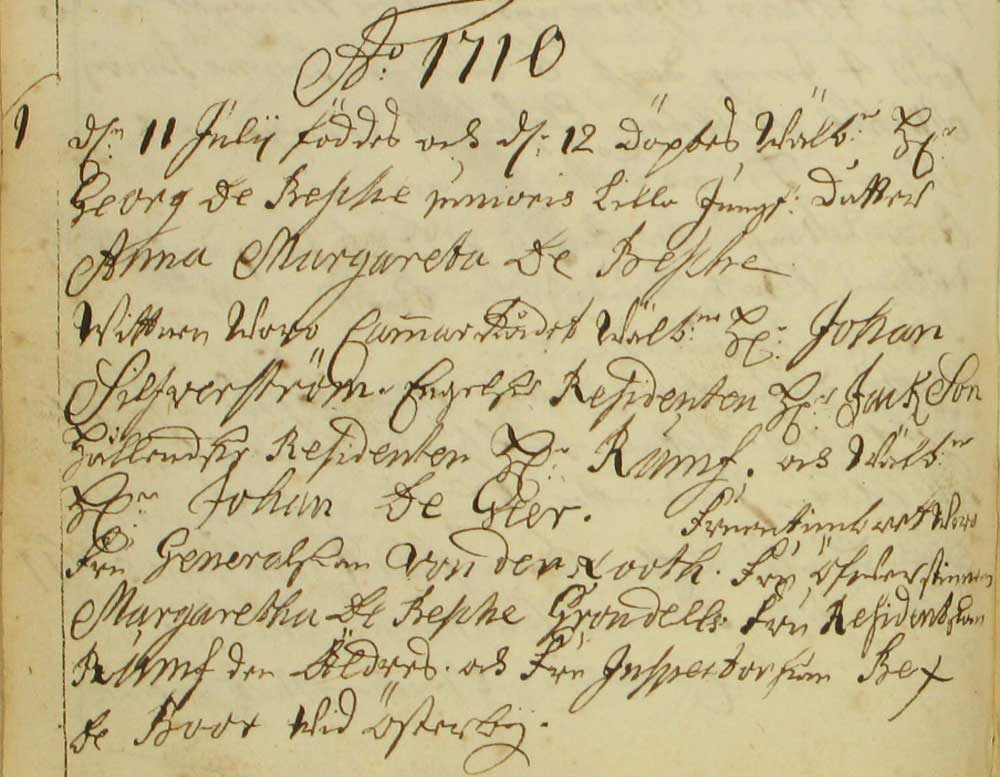 Ao: 1710
1 dn: 11 Julij föddes och d: 12 döptes Wälb:n Hr:
Georg De Besche junioris Lilla Jungf: Dåtter
Anna Margareta De Besche
Wittnen Woro Cammar Rådet Wälb:n Hr: Johan
Silfverström. Engelske Residenten Hr: JackSon
Hållendske Residenten Hr: Rumf. och Wälb:n
Hr: Johan De Geer. Fruentimbret Woro
Fru Generalskan von der Nooth. Fru Öfwerstinnan
Margaretha De Besche Grondell. Fru Residentskan
Rumf den Äldres. och Fru Inspectorskan
de Boor wid Österby.